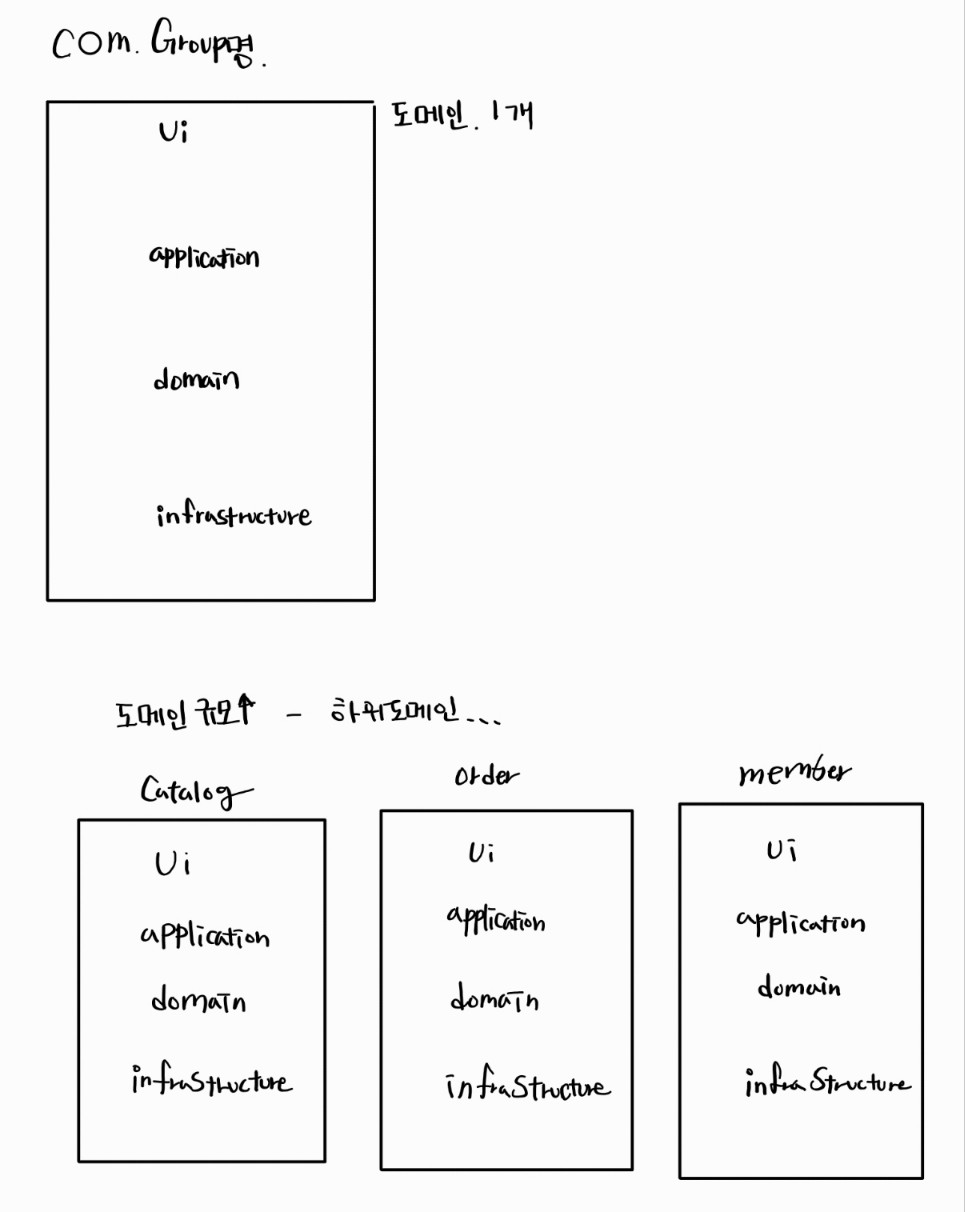 com. Group명.
도메인. 1개
Ui
application
domain
infrastructure
도메인 규모↑ - 하위도메인...
Catalog
Ui
application
domain
infrastructure
order
Ui
application
domain
infrastructure
member
Ui
application
domain
infrastructure